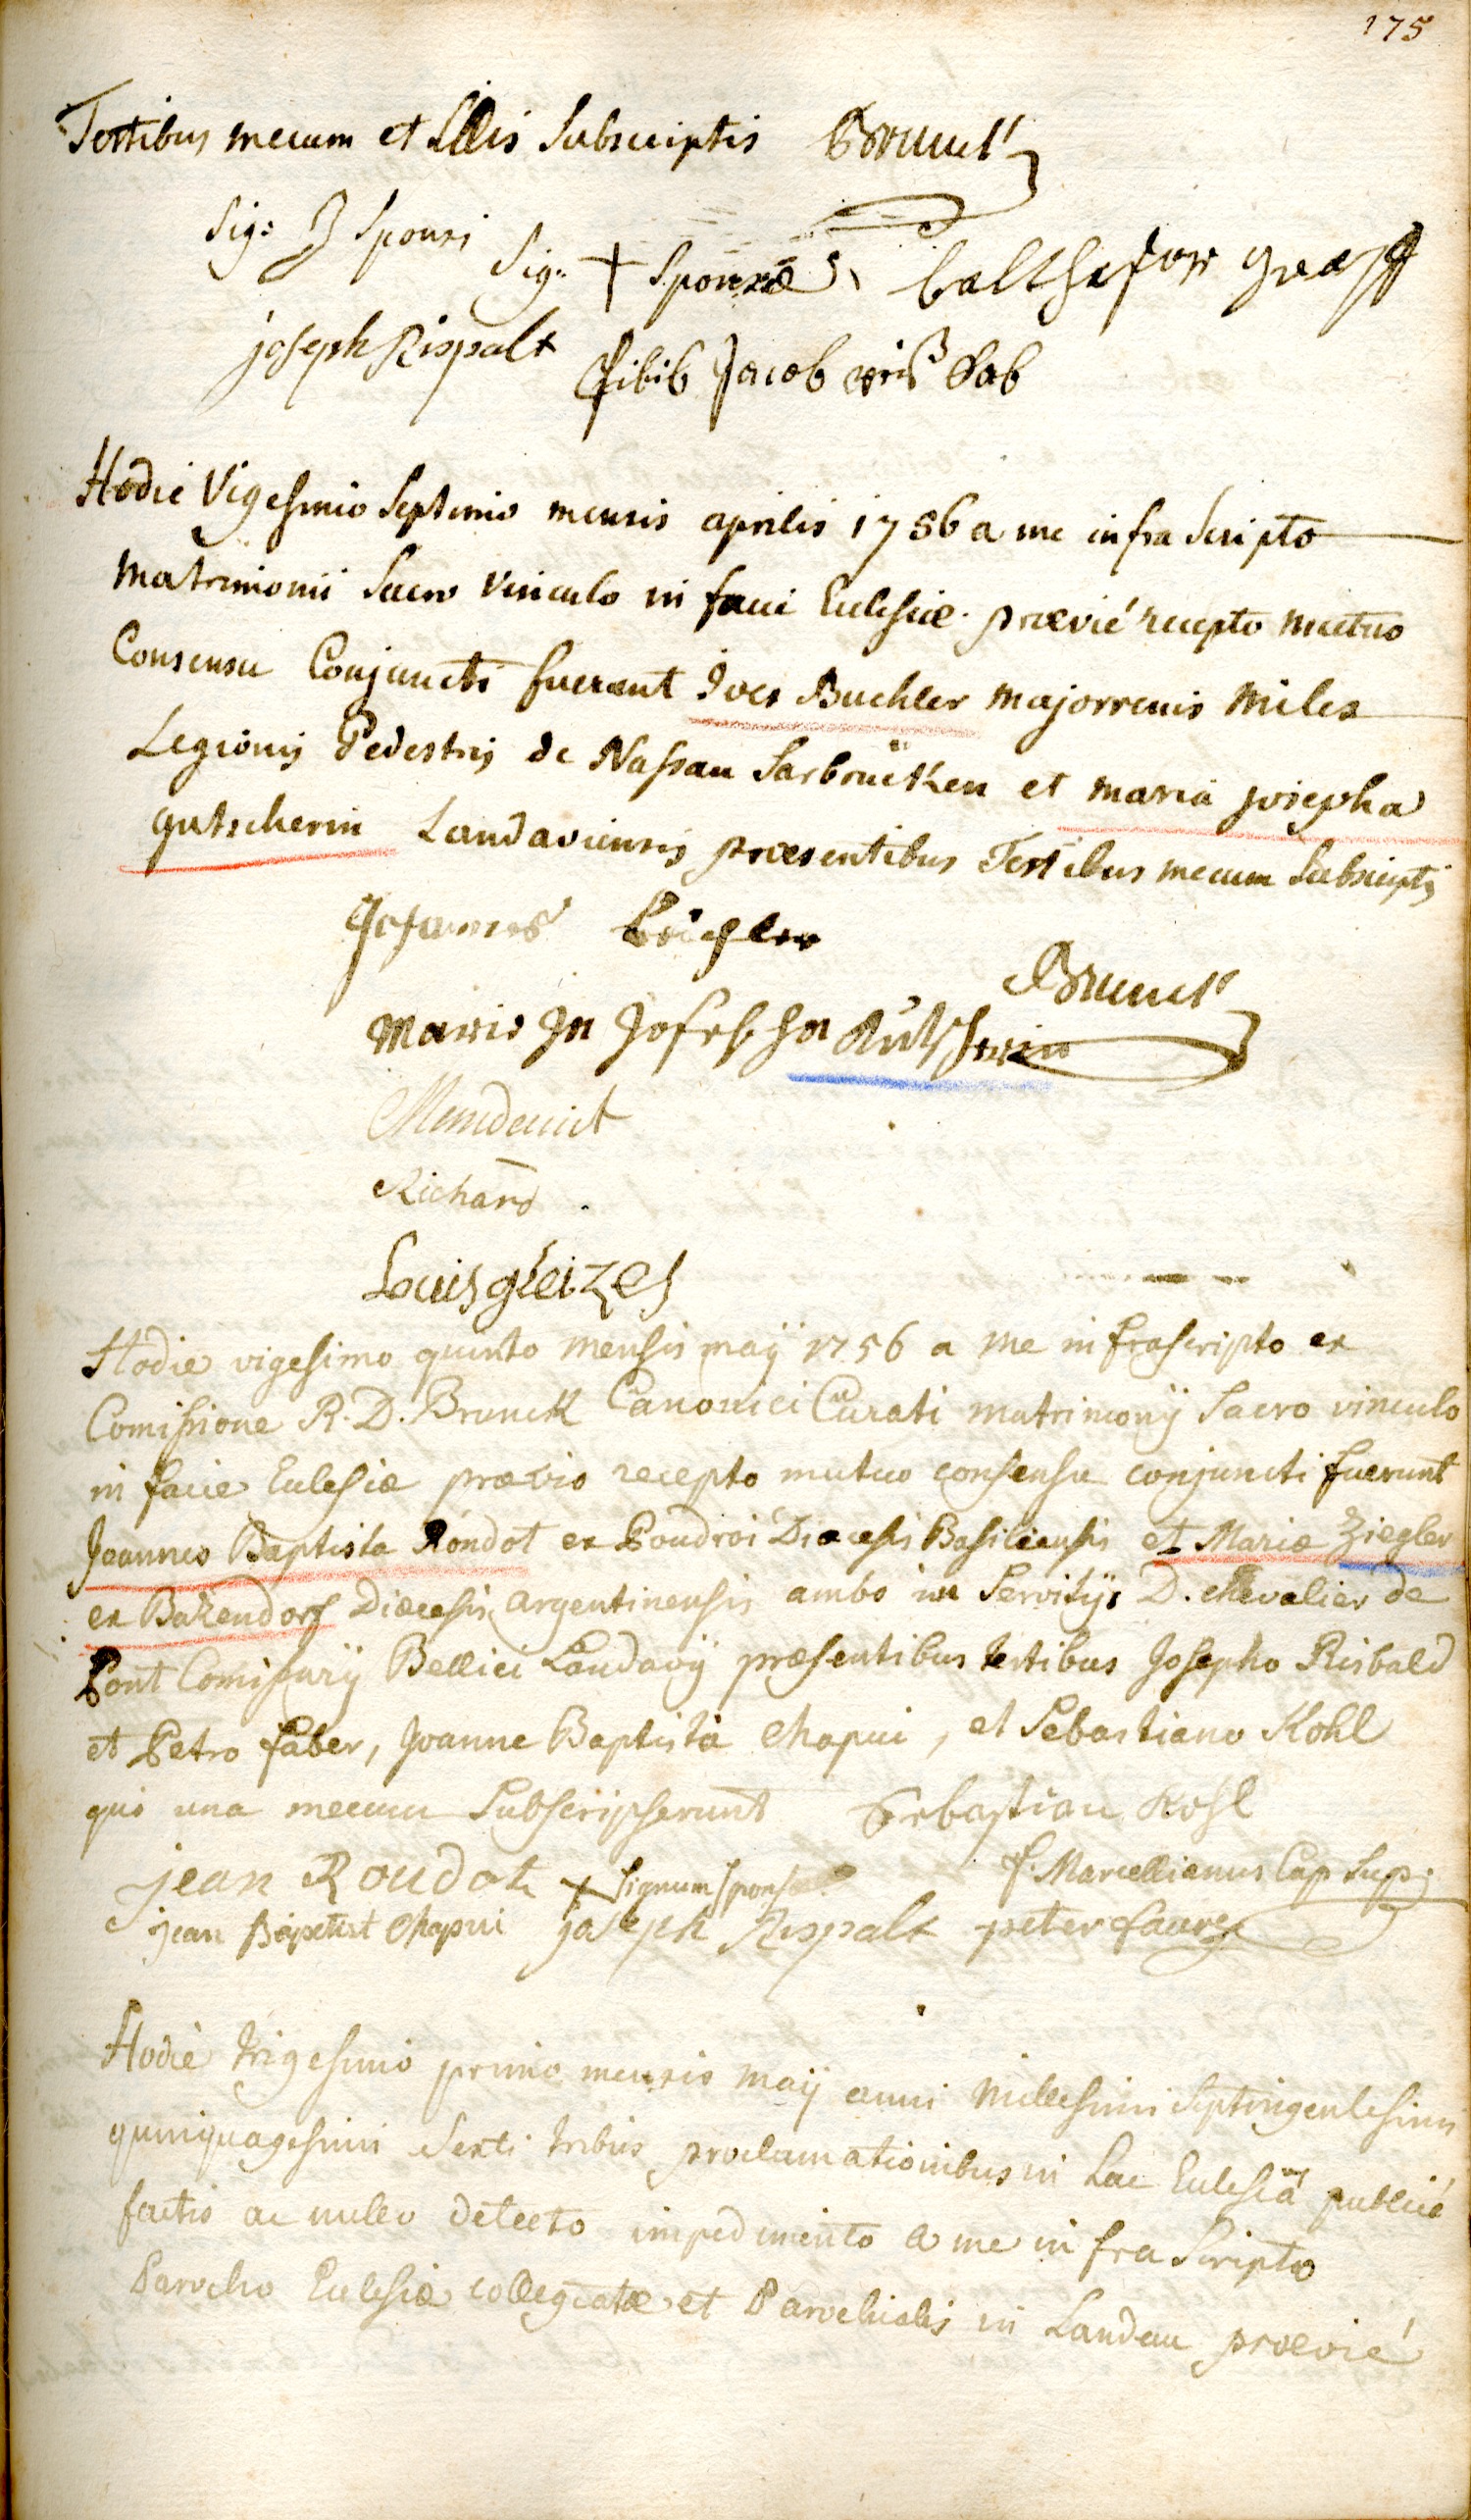 175
Testibus mecum et Illis Subscriptis Brunck
Sig: J Sponsi Sig: + Sponsæ balthasar graff
joseph Rispalt Jacob
Hodie Vigesimo Septimo mensis aprilis 1756 a me infra Scripto
Matrimonii Sacro Vinculo in facie Eclesiæ præviè recepto mutuo
Consensu Conjuncti fuerunt Joes Buchler majorrenis Miles
Legionis Pedestris de Nassau Sarbrücken et maria josepha
gutscherin Landaviensis præsentibus Testibus mecum Subscriptis
Johannes Büchler
Brunck
Maria
Richard
Louis gleizes
Hodie vigesimo quinto mensis maÿ 1756 a me infrascripto ex
Comissione R. D. Brunck Canonici Curati matrimonÿ Sacro vinculo
in facie Eclesiæ prævio recepto mutuo consensu conjuncti fuerunt
Joannes Baptista Rondot ex Poudroi Diœcesis Basileensis et Maria Ziegler
ex Bazendorf Diœcesis argentinensis ambo in Servitÿs D. chevalier de
Pont Comissarÿ Bellici Landavÿ præsentibus testibus Josepho Risbald
et Petro faber, Joanne Baptista Chapui, et Sebastiano Kohl
qui una mecum Subscripserunt Sebastian Kohl
jean Roudot + Signum Sponsæ f. Marcellianus Cap Sup:
jean Baptist Chapui joseph Rispalt peter
Hodiè trigesimo primo mensis maÿ anni millesimi Septingentesimi
quinquagesimi Sexti tribus proclamationibus in hac Eclesiâ publicè
factis ac nullo detecto impedimento a me infra Scripto
Parocho Eclesiæ collegiatæ et Parochialis in Landau præviè